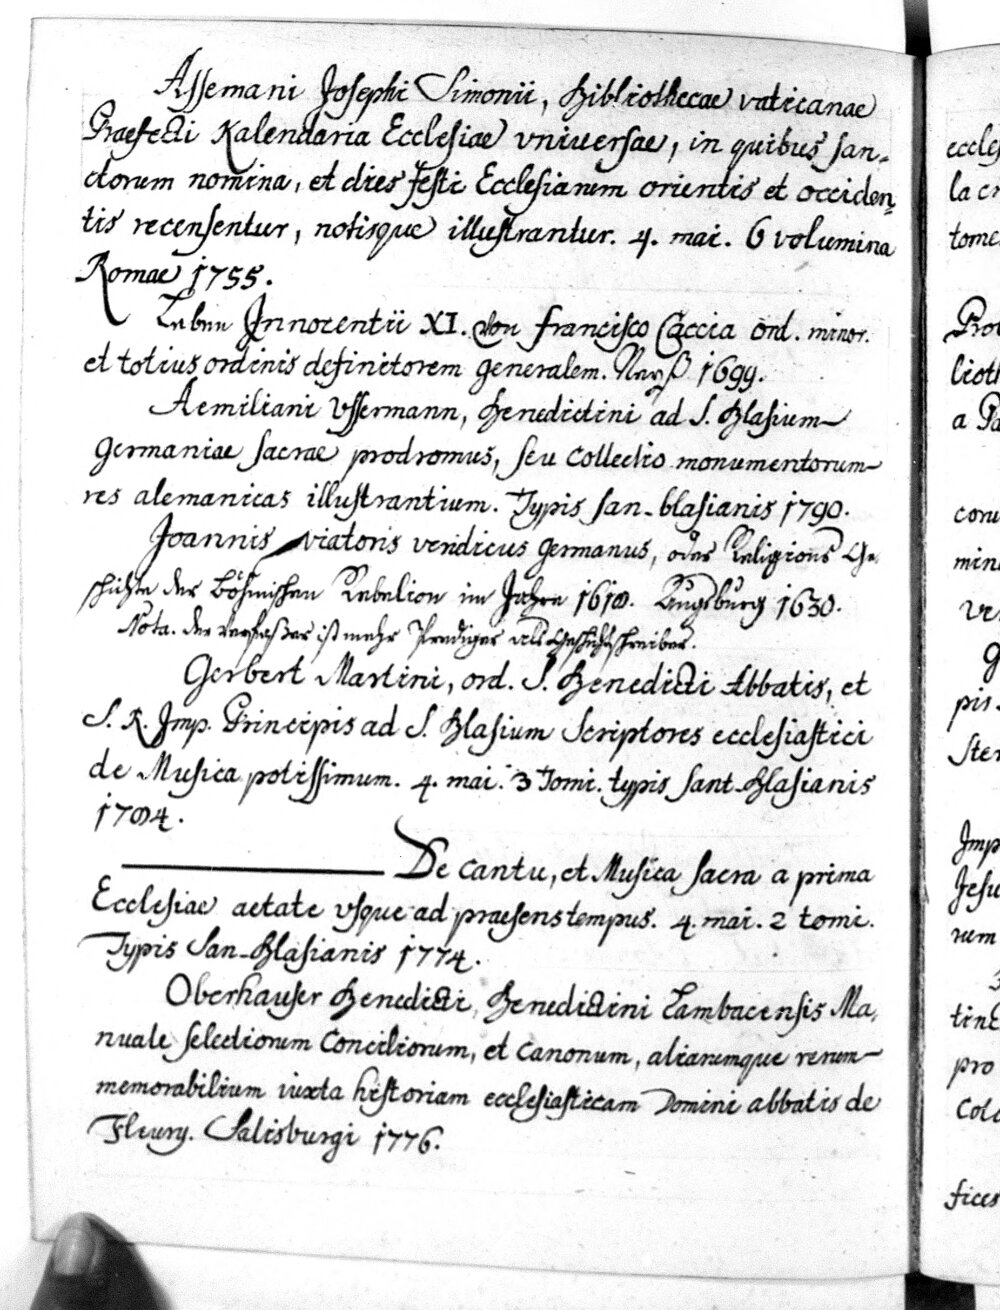 Assemani Josephi Simonii, Bibliothecae vaticanae
Praefecti Kalendaria Ecclesiae vniuersae, in quibus san-
ctorum nomina, et dies festi Ecclesiarum orientis et occiden-
tis recensentur, notisque illustrantur. 4. mai. 6 volumina
Romae 1755.
Leben Innocentii XI. von Francisco Caccia ord. minor.
et totius ordinis definitorem generalem. 1699.
Aemiliani Vssermann, Benedictini ad S. Blasium
Germaniae sacrae prodromus, seu Collectio monumentorum
res alemanicas illustrantium. Typis san-blasianis 1790.
Joannis viatoris veridicus Germanus, oder Religions Ge-
schichte der Böhmischen Rebelion im Jahre 1618. Augsburg 1630.
Nota. der Verfaßer ist mehr Prediger als Geschichtschreiber.
Gerbert Martini, ord. S. Benedicti Abbatis, et
S. R. Imp. Principis ad S. Blasium Scriptores ecclesiastici
de Musica potissimum. 4. mai. 3 Tomi. typis Sant-Blasianis
1784.
De cantu, et Musica sacra a prima
Ecclesiae aetate vsque ad praesens tempus. 4. mai. 2 tomi.
Typis San-Blasianis 1774.
Oberhauser Benedicti, Benedictini Lambacensis Ma-
nuale selectiorum Conciliorum, et Canonum, aliarumque rerum
memorabilium iuxta historiam ecclesiasticam Domini abbatis de
Fleury. Salisburgi 1776.